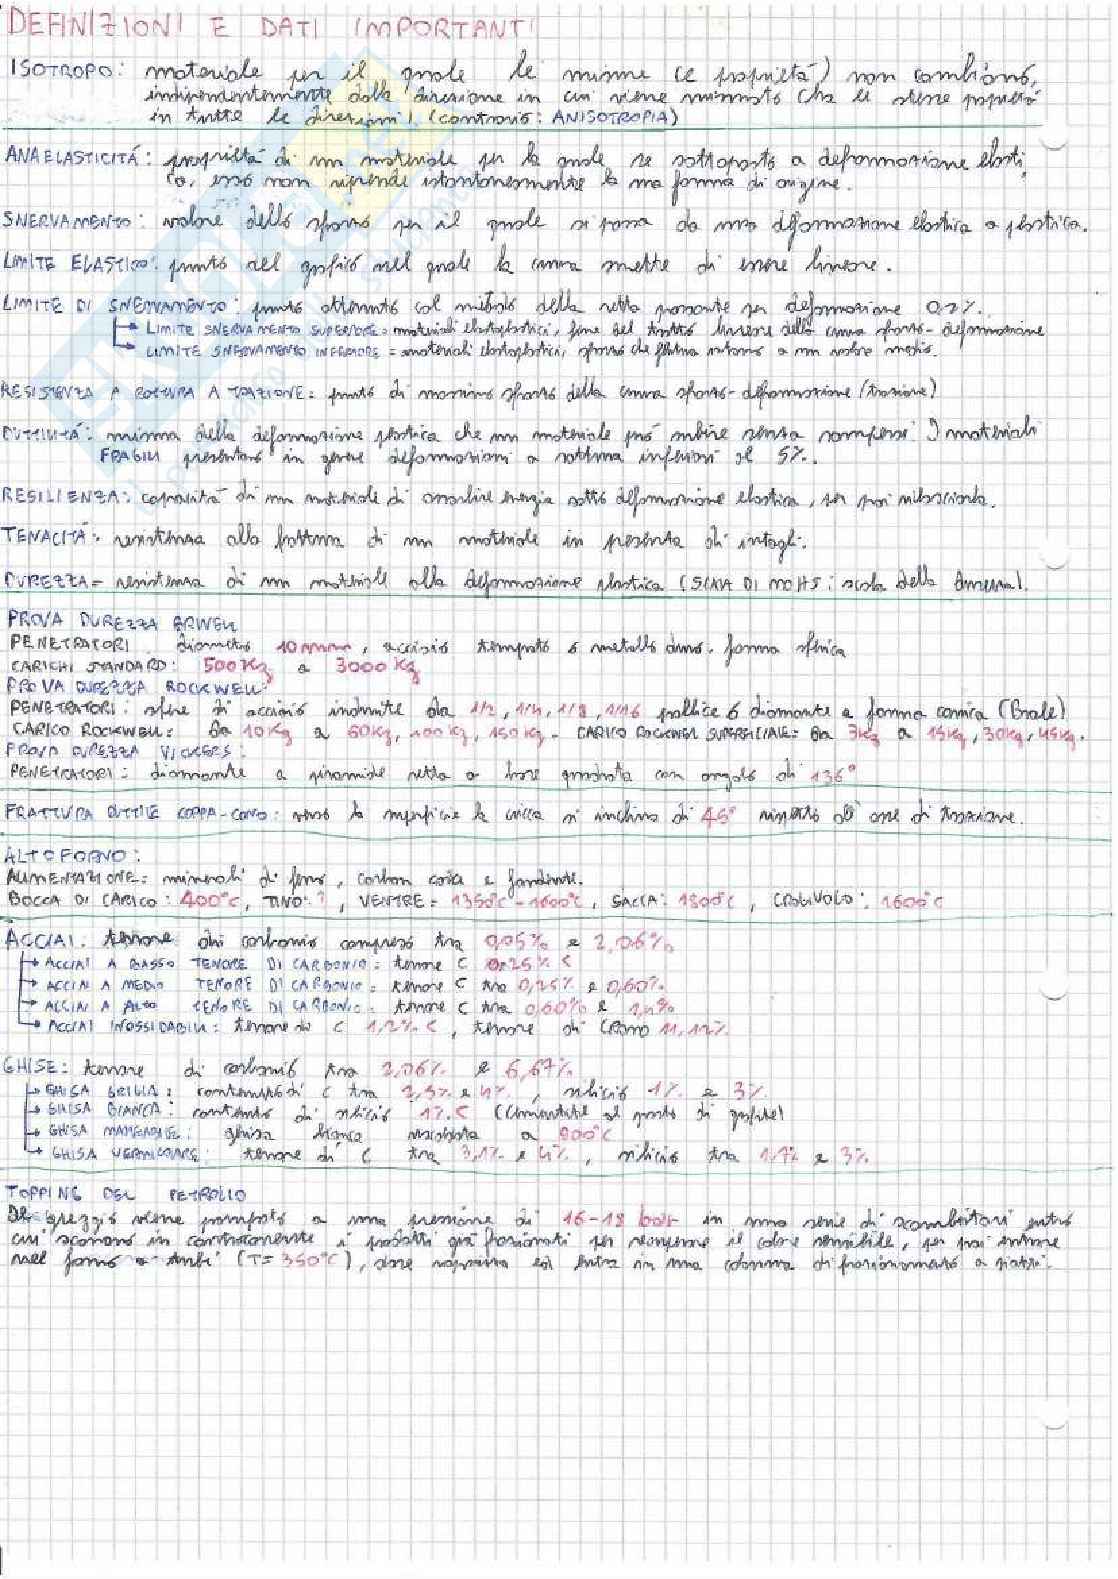 DEFINIZIONI E DATI IMPORTANTI
ISOTROPO: materiale per il quale le misure (e proprietà) non cambiano,
indipendentemente dalla direzione in cui viene misurato (ha le stesse proprietà
in tutte le direzioni). (contrario: ANISOTROPIA)
ANAELASTICITÁ: proprietà di un materiale per la quale se sottoposto a deformazione elasti
ca, esso non riprende istantaneamente la sua forma di origine.
SNERVAMENTO: valore dello sforzo per il quale si passa da una deformazione elastica a plastica.
LIMITE ELASTICO: punto nel grafico nel quale la curva smette di essere lineare.
LIMITE DI SNERVAMENTO: punto ottenuto col metodo della retta passante per deformazione 0.2%.
LIMITE SNERVAMENTO SUPERIORE = materiali elastoplastici, fine del tratto lineare della curva sforzo-deformazione
LIMITE SNERVAMENTO INFERIORE = materiali elastoplastici, sforzo che fluttua intorno a un valore medio.
RESISTENZA A ROTTURA A TRAZIONE: punto di massimo sforzo della curva sforzo-deformazione (trazione)
DUTTILITÁ: misura della deformazione plastica che un materiale può subire senza rompersi. I materiali
FRAGILI presentano in genere deformazioni a rottura inferiori al 5%.
RESILIENZA: capacità di un materiale di assorbire energia sotto deformazione elastica, per poi rilasciarla.
TENACITÁ: resistenza alla frattura di un materiale in presenza di intagli.
DUREZZA = resistenza di un materiale alla deformazione plastica (SCALA DI MOHS: scala della durezza).
PROVA DUREZZA BRINELL
PENETRATORI: diametro 10mm, acciaio temprato o metallo duro. forma sferica
CARICHI STANDARD: 500 Kg a 3000 Kg
PROVA DUREZZA ROCKWELL:
PENETRATORI: sfere di acciaio indurite da 1/2, 1/4, 1/8, 1/16 pollice o diamante a forma conica (Brale)
CARICO ROCKWELL: Da 10Kg a 60Kg, 100Kg, 150Kg. CARICO ROCKWELL SUPERFICIALE: Da 3Kg a 15Kg, 30Kg, 45Kg.
PROVA DUREZZA VICKERS:
PENETRATORI: diamante a piramide retta a base quadrata con angolo di 136°
FRATTURA DUTTILE COPPA-CONO: verso la superficie la cricca si inclina di 45° rispetto all'asse di trazione.
ALTOFORNO:
ALIMENTAZIONE: minerali di ferro, carbon coke e fondente.
BOCCA DI CARICO: 400°C, TINO: ?, VENTRE = 1350°C-1600°C, SACCA: 1800°C, CROGIUOLO: 1600°C
ACCIAI: tenore di carbonio compreso tra 0,05% e 2,06%
ACCIAI A BASSO TENORE DI CARBONIO: tenore C 0.25% <
ACCIAI A MEDIO TENORE DI CARBONIO: tenore C tra 0,25% e 0,60%
ACCIAI A ALTO TENORE DI CARBONIO: tenore C tra 0,60% e
ACCIAI INOSSIDABILI: tenore di C 1,2% <, tenore di CROMO 11,12%
GHISE: tenore di carbonio tra 2,06% e 6,67%
GHISA GRIGIA: contenuto di C tra 2,5% e 4%, silicio 1% e 3%
GHISA BIANCA: contenuto di silicio 1% < (cementite al posto di grafite)
GHISA MALLEABILE: ghisa bianca riscaldata a 900°C
GHISA VERMICOLARE: tenore di C tra 3,1% e 4%, silicio tra 1,7% e 3%
TOPPING DEL PETROLIO
Il greggio viene pompato a una pressione di 16-18 bar in una serie di scambiatori entro
cui scorrono in controcorrente i prodotti già frazionati per recuperare il calore sensibile, per poi entrare
nel forno a tubi (T= 350°C), dove vaporizza ed entra in una colonna di frazionamento a piatti.